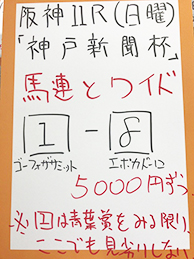 阪神11R(日曜)
「神戸新聞杯」
馬連とワイド
1-8
ゴーフォザサミット エポカドーロ
5000円ずつ
※1は青葉賞をみる限り、
ここでも見劣りしない